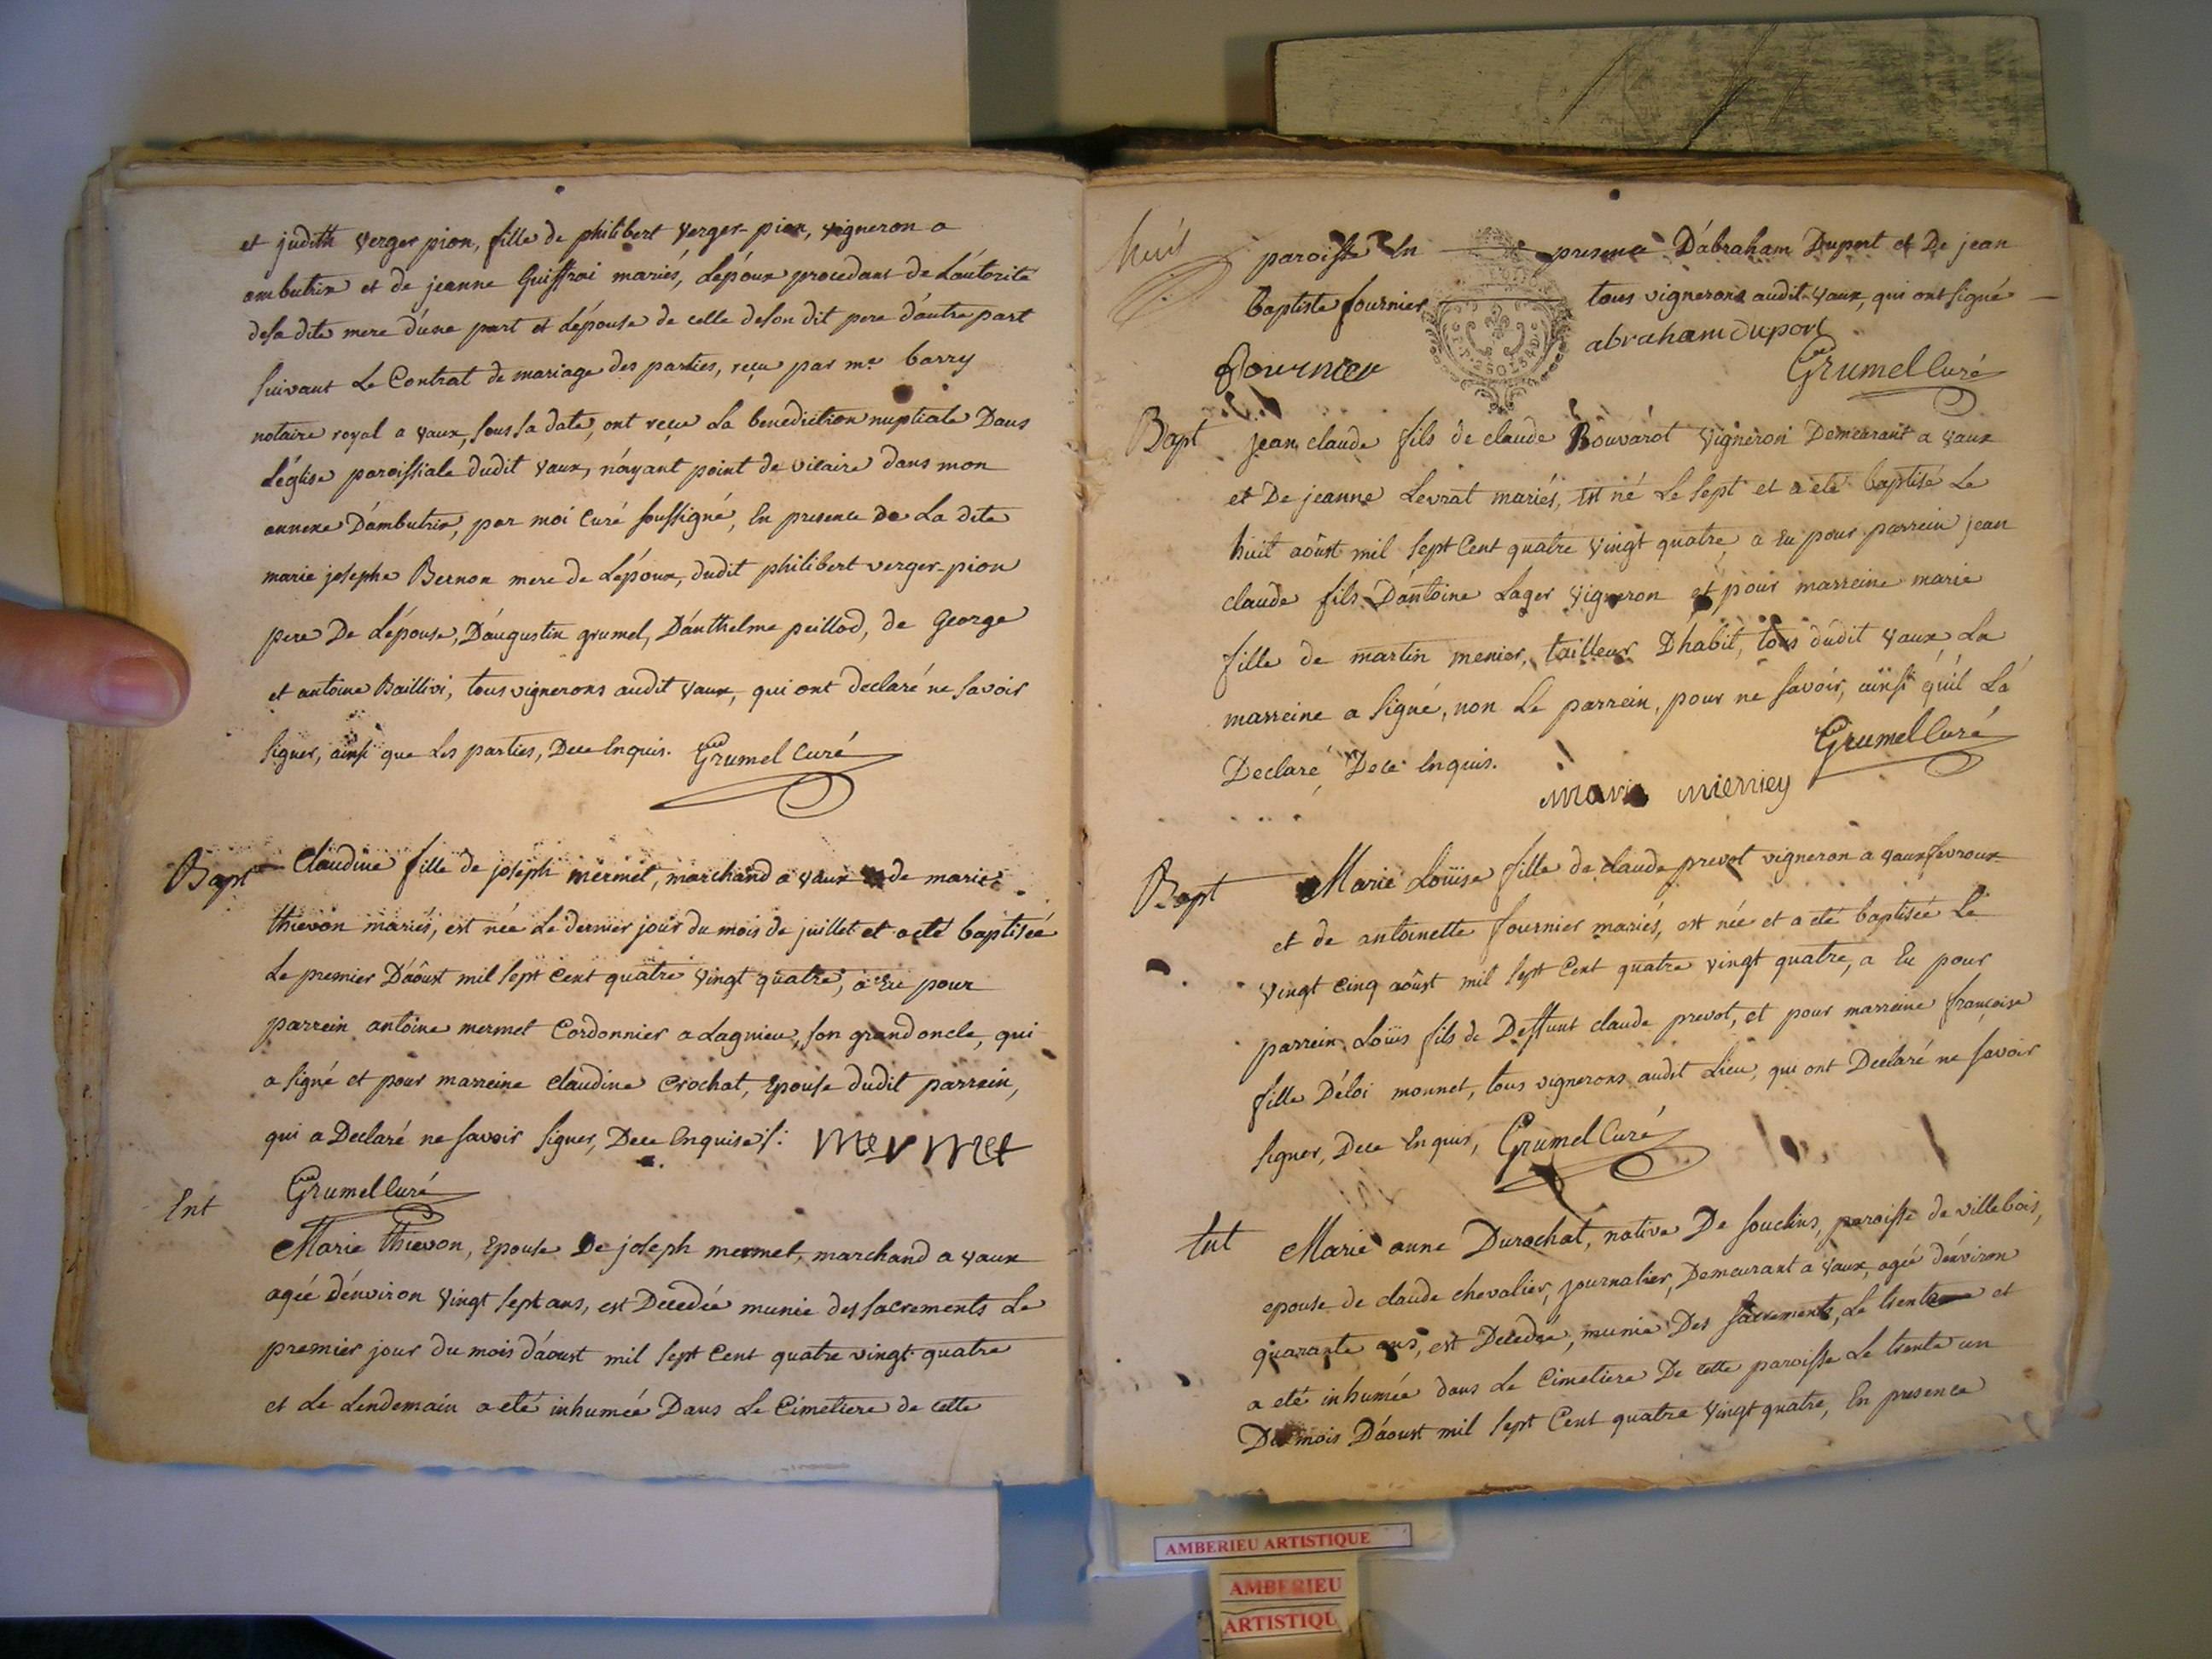 et judith verger pion, fille de philibert verger-pion, vigneron a
ambutrix et de jeanne Guiffrai mariés, L'époux procedant de L'autorité
de sa dite mere d'une part et L'épouse de celle de son dit pere d'autre part
suivant Le Contrat de mariage des parties, reçu par me. barry
notaire royal a vaux, sous sa date, ont reçu La benediction nuptiale Dans
L'église paroissiale dudit vaux, n'ayant point de vicaire dans mon
annexe D'ambutrix, par moi Curé soussigné, En presence De La dite
marie josephe Bernon mere de L'époux, dudit philibert verger-pion
pere De L'épouse, D'augustin grumel, D'anthelme peillod, de George
et antoine Baillivi, tous vignerons audit vaux, qui ont declaré ne savoir
signer, ainsi que Les parties, De ce Enquis. Grumel Curé
Bapt Claudine fille de joseph mermet, marchand a vaux et de marie
thievon mariés, est née Le dernier jour du mois de juillet et a eté baptisée
Le premier D'août mil sept Cent quatre vingt quatre, a Eu pour
parrein antoine mermet Cordonnier a Lagnieu, son grand oncle, qui
a signé et pour marreine claudine Crochat, Epouse dudit parrein,
qui a Declaré ne savoir signer, De ce Enquise /: mermet
Grumel Curé
Ent
Marie thievon, Epouse De joseph mermet, marchand a vaux
agée d'environ vingt sept ans, est Decedée munie des sacrements Le
premier jour du mois d'aoust mil sept Cent quatre vingt quatre
et Le Lendemain a eté inhumée Dans Le Cimetiere de cette
huit
paroisse En presence D'abraham Duport et De jean
baptiste fournier tous vignerons audit vaux, qui ont signé
abraham duport
fournier Grumel Curé
Bapt jean claude fils de claude Bouvarot vigneron Demeurant a vaux
et De jeanne Levrat mariés, Est né Le sept et a eté baptisé Le
huit août mil sept Cent quatre vingt quatre, a Eu pour parrein jean
claude fils D'antoine Lager vigneron et pour marreine marie
fille de martin menier, tailleur D'habit, tous dudit vaux, La
marreine a signé, non Le parrein, pour ne savoir, ainsi qu'il L'a
Declaré, De ce Enquis. Grumel Curé
marie mierriey
Bapt Marie Loüise fille de claude prevot vigneron a vaux fevroux
et de antoinette fournier mariés, est née et a eté baptisée Le
vingt cinq août mil sept Cent quatre vingt quatre, a Eu pour
parrein Loüis fils de Deffunt claude prevot, et pour marreine françoise
fille D'éloi monnet, tous vignerons audit Lieu, qui ont Declaré ne savoir
signer, De ce Enquis, Grumel Curé
Ent Marie anne Durochat, native De souclins, paroisse de villebois,
epouse de claude chevalier, journalier, Demeurant a vaux, agée d'environ
quarante ans, est Decedée, munie Des sacrements, Le trente et
a eté inhumée dans Le Cimetiere De cette paroisse Le trente un
Du mois D'aoust mil sept Cent quatre vingt quatre, En presence
AMBERIEU ARTISTIQUE
AMBERIEU
ARTISTIQU